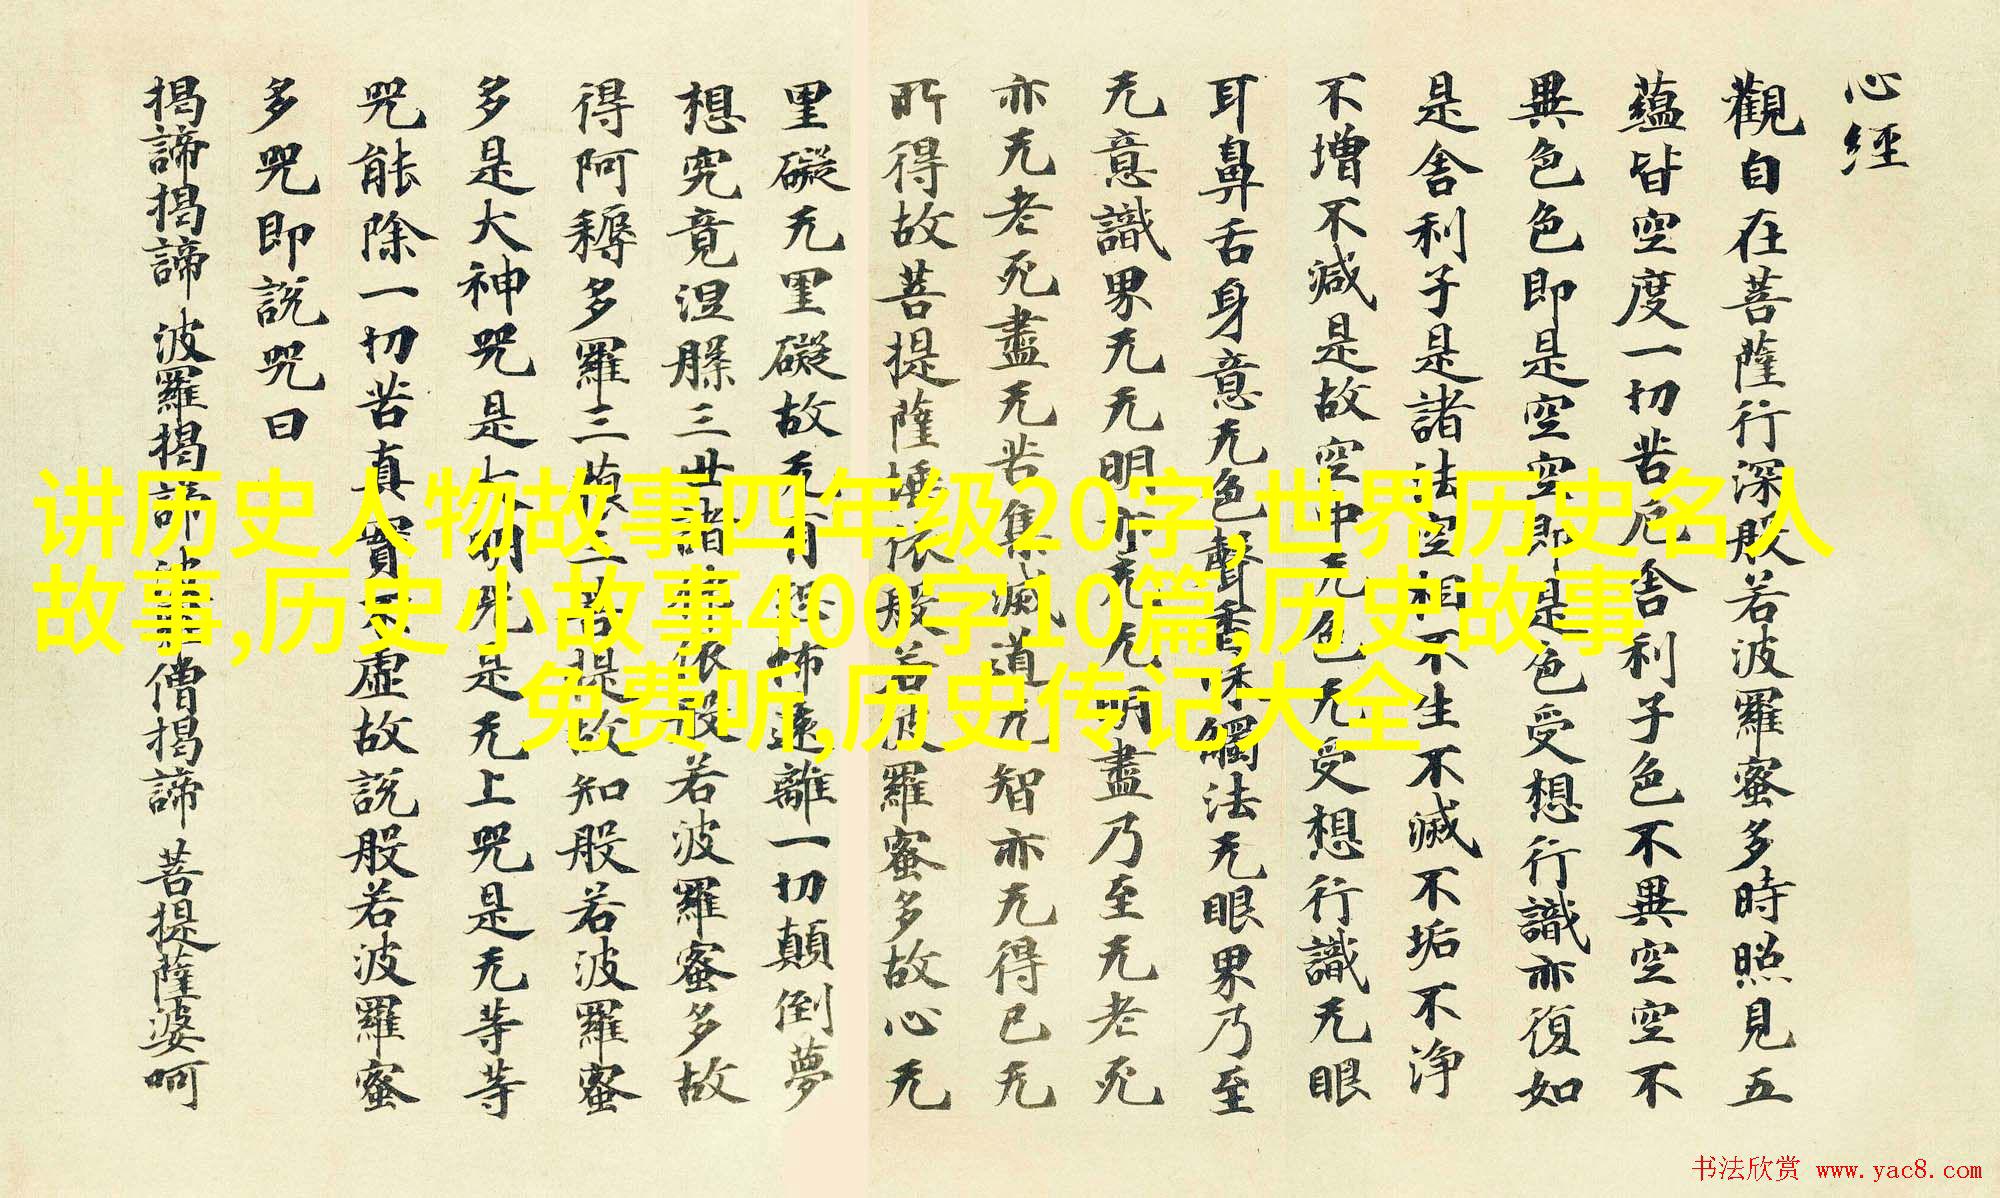 心經
觀自在菩薩行深般若波羅蜜多時照見五
蘊皆空度一切苦厄舍利子色不異空空不
異色色即是空空即是色受想行識亦復如
是舍利子是諸法空相不生不滅不垢不淨
不增不減是故空中无色无受想行識无眼
耳鼻舌身意无色聲香味觸法无眼界乃至
无意識界无无明亦无无明盡乃至无老死
亦无老死盡无苦集滅道无智亦无得已无
所得故菩提薩埵依般若波羅蜜多故心无
罣礙无罣礙故无有恐怖遠離一切顛倒夢
想究竟涅槃三世諸佛依般若波羅蜜多故
得阿耨多羅三藐三菩提故知般若波羅蜜
多是大神咒是大明咒是无上咒是无等等
咒能除一切苦真實不虛故說般若波羅蜜
多咒即說咒曰
揭諦揭諦 波羅揭諦 波羅僧揭諦 菩提薩婆呵
讲历史人物故事四年级20字,世界历史名人
故事,历史小故事400字10篇,历史故事
免费听,历史传记大全
书法欣赏 www.yac8.com